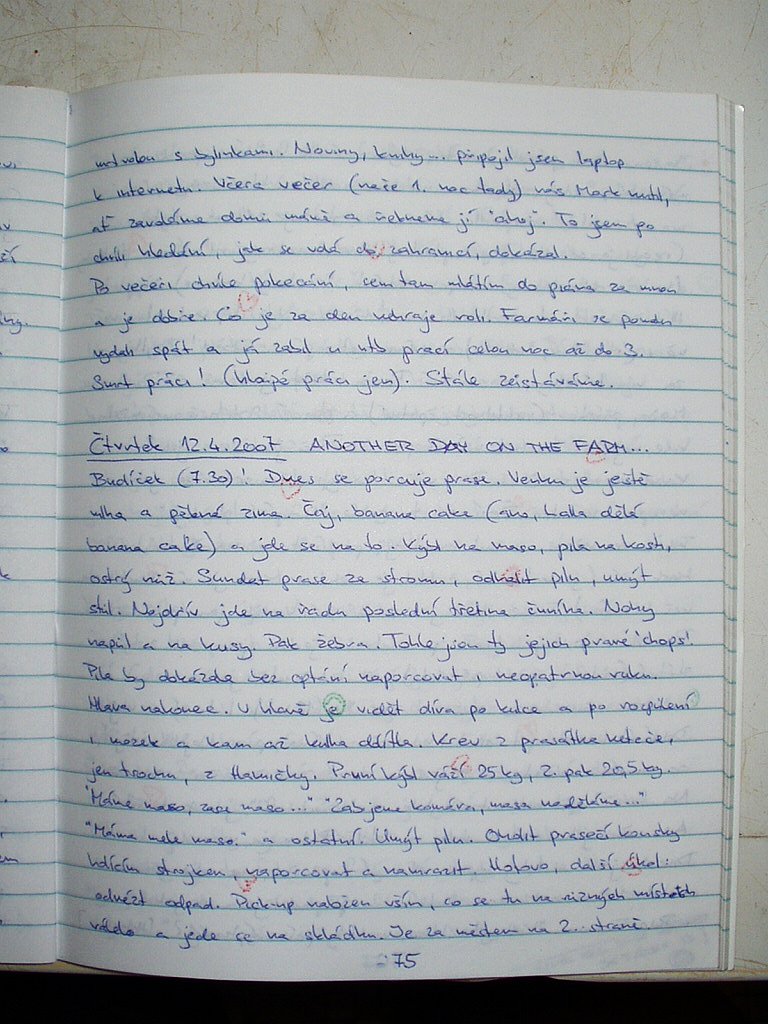 s bylinkami. Noviny, knihy... připojil jsem laptop
k internetu. Včera večer (naše 1. noc tady) nás Mark nutil,
ať zavoláme domů mámě a řekneme jí "ahoj". To jsem po
chvíli hledání, jak se volá do zahraničí, dokázal.
Po večeři chvíle pokecání, sem tam mlátím do piána za mnou
a je dobře. Co je za den nehraje roli. Farmáři se pomalu
vydali spát a já zabil u ntb prací celou noc až do 3.
Smrt práci! (hloupé práci jen). Stále zůstáváme.
Čtvrtek 12.4.2007 ANOTHER DAY ON THE FARM...
Budíček (7.30)! Dnes se porcuje prase. Venku je ještě
mlha a pěkná zima. Čaj, banana cake (ano, Lalla dělá
banana cake) a jde se na to. Kýbl na maso, pila na kosti,
ostrý nůž. Sundat prase ze stromu, odhalit pilu, umýt
stůl. Nejdřív jde na řadu poslední třetina čuníka. Nohy
napůl a na kusy. Pak žebra. Tohle jsou ty jejich pravé 'chops'.
Pila by dokázala bez optání naporcovat i neopatrnou ruku.
Hlava nakonec. V hlavě je vidět díra po kulce a po rozpůlení
i mozek a kam až kulka došla. Krev z prasátka neteče,
jen trochu, z hlavičky. První kýbl váží 25kg, 2. pak 20,5kg.
"Máme maso, zase maso..." "Zabijeme komára, masa naděláme..."
"Máma mele maso." a ostatní. Umýt pilu. Oholit prasečí kousky
holícím strojkem, naporcovat a namrazit. Hotovo, další úkol:
odvézt odpad. Pick-up naložen vším, co se tu na různých místech
válelo a jede se na skládku. Je za městem na 2. straně.
75